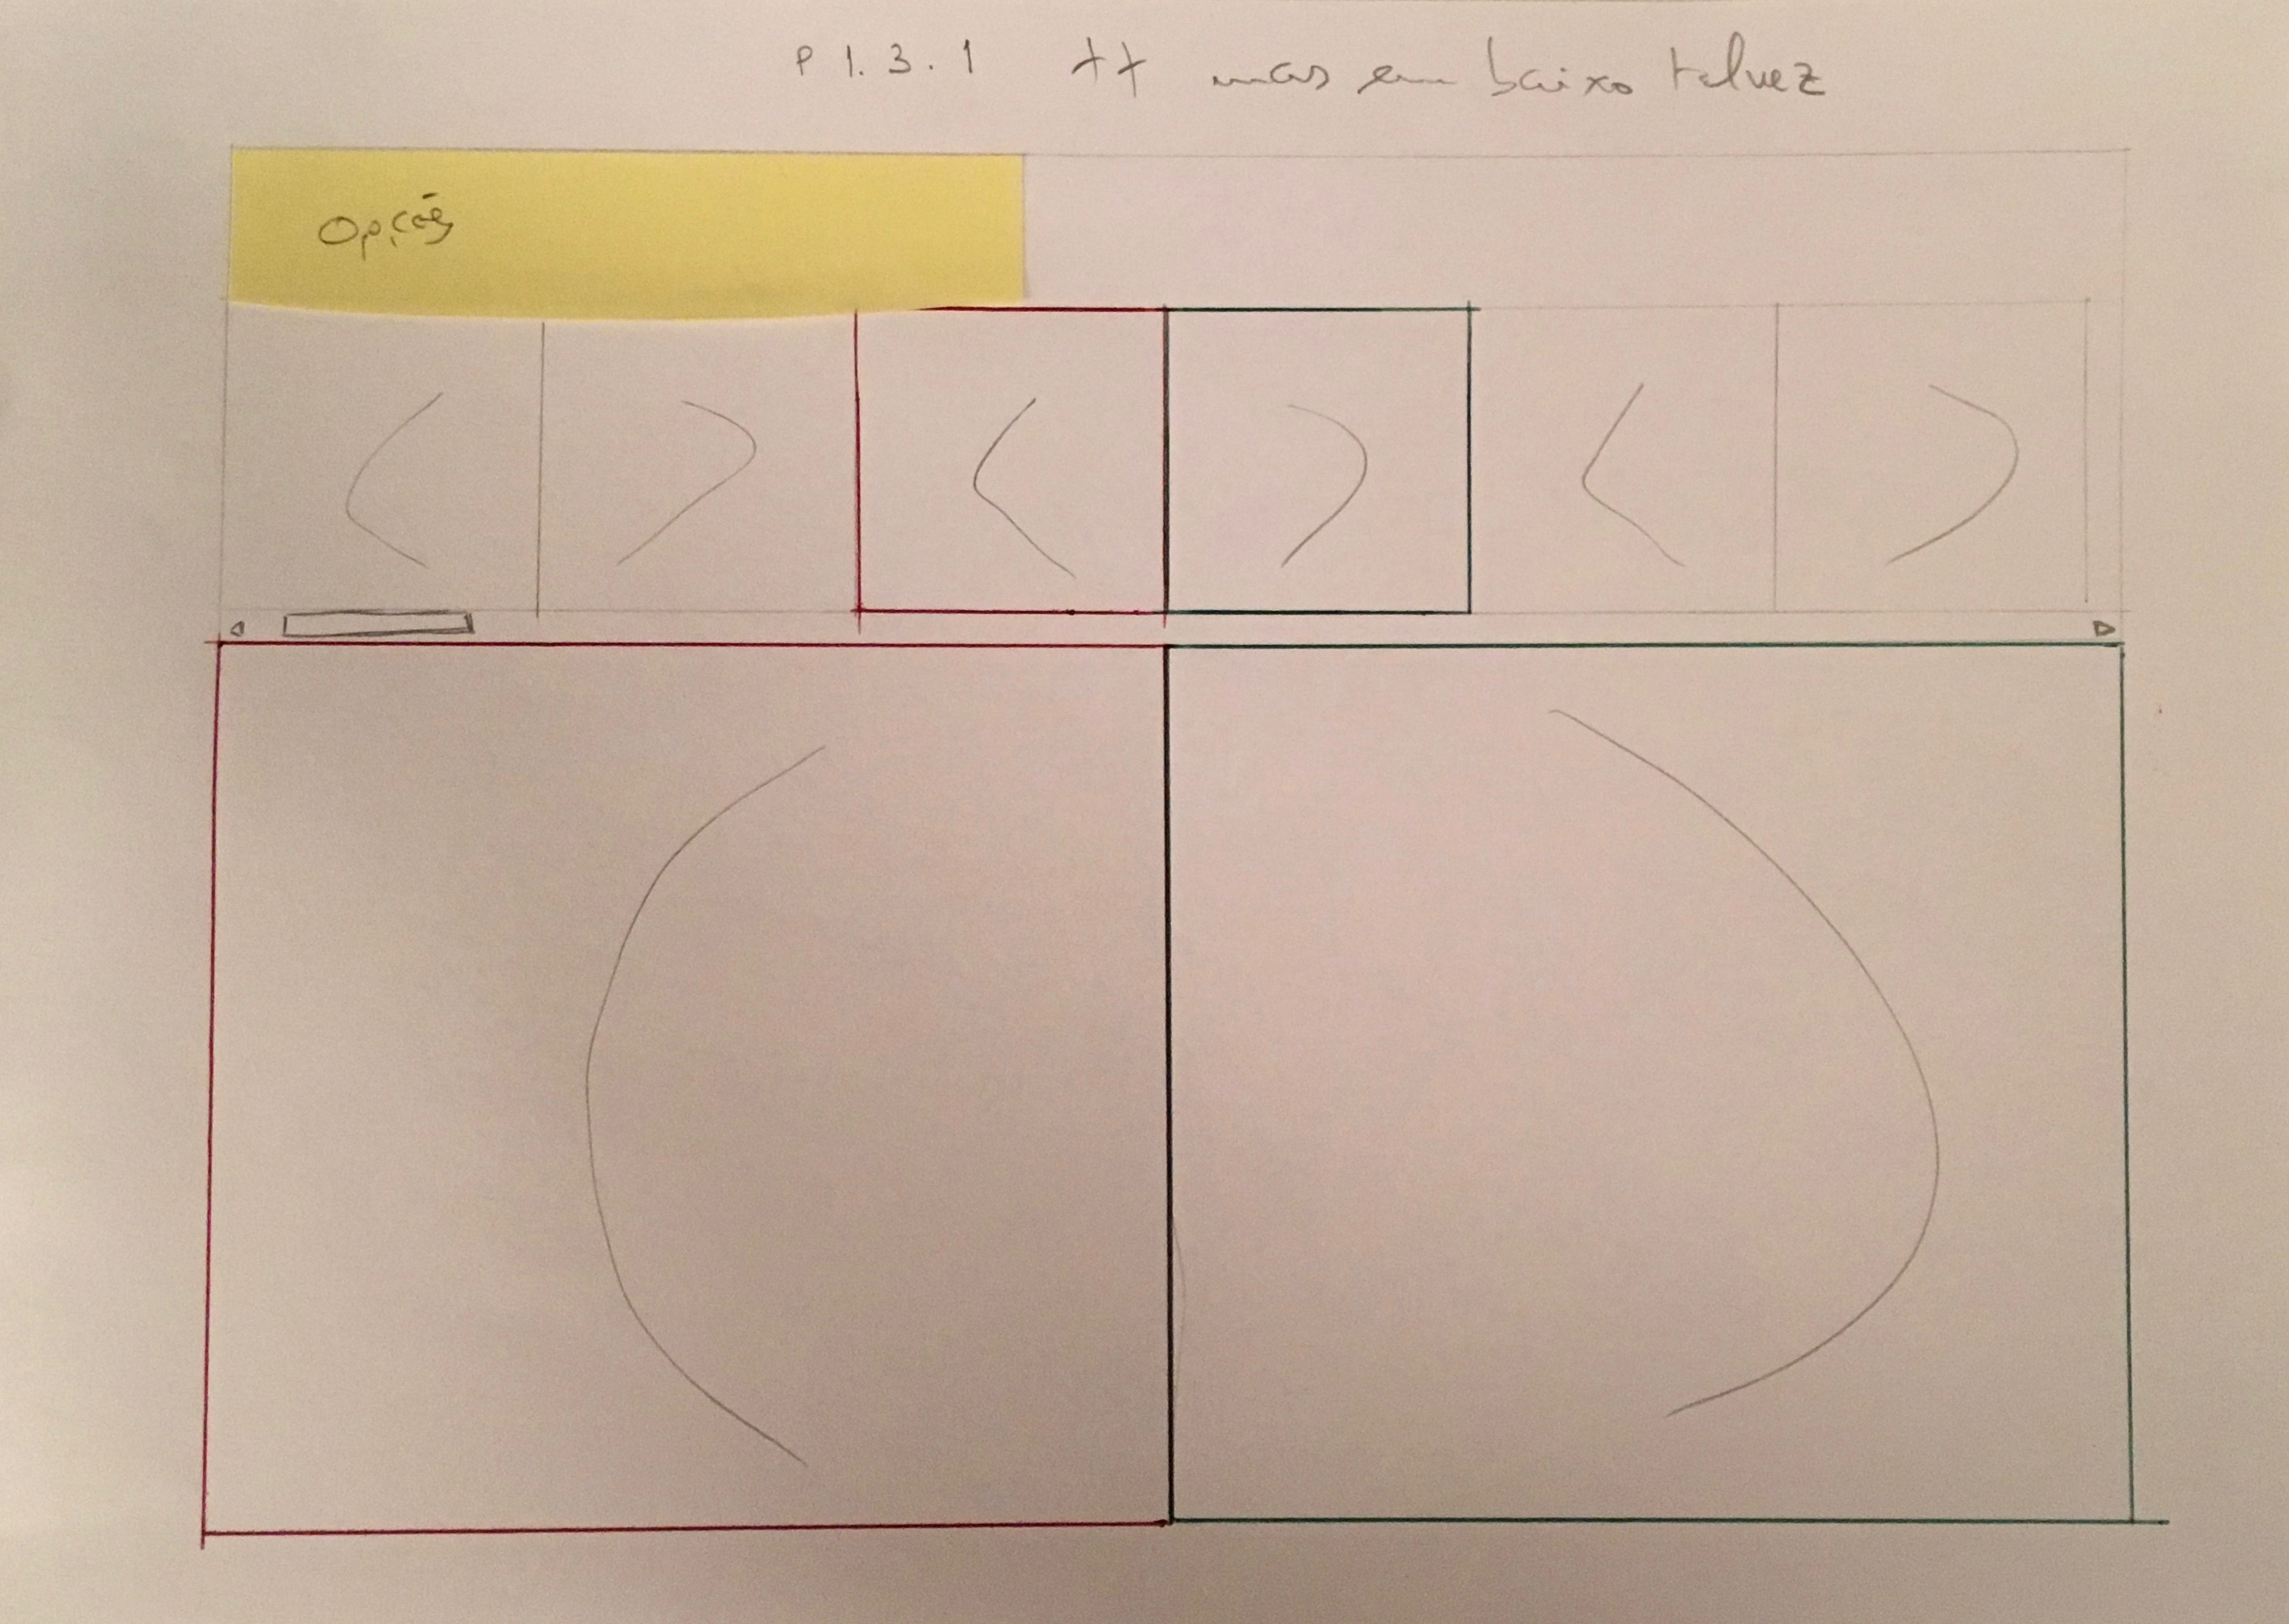 P 1.3.1 ++ mas em baixo talvez
Opções